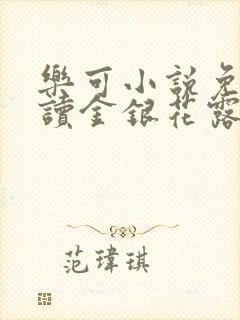 樂可小説免
讀金銀花露
范瑋琪